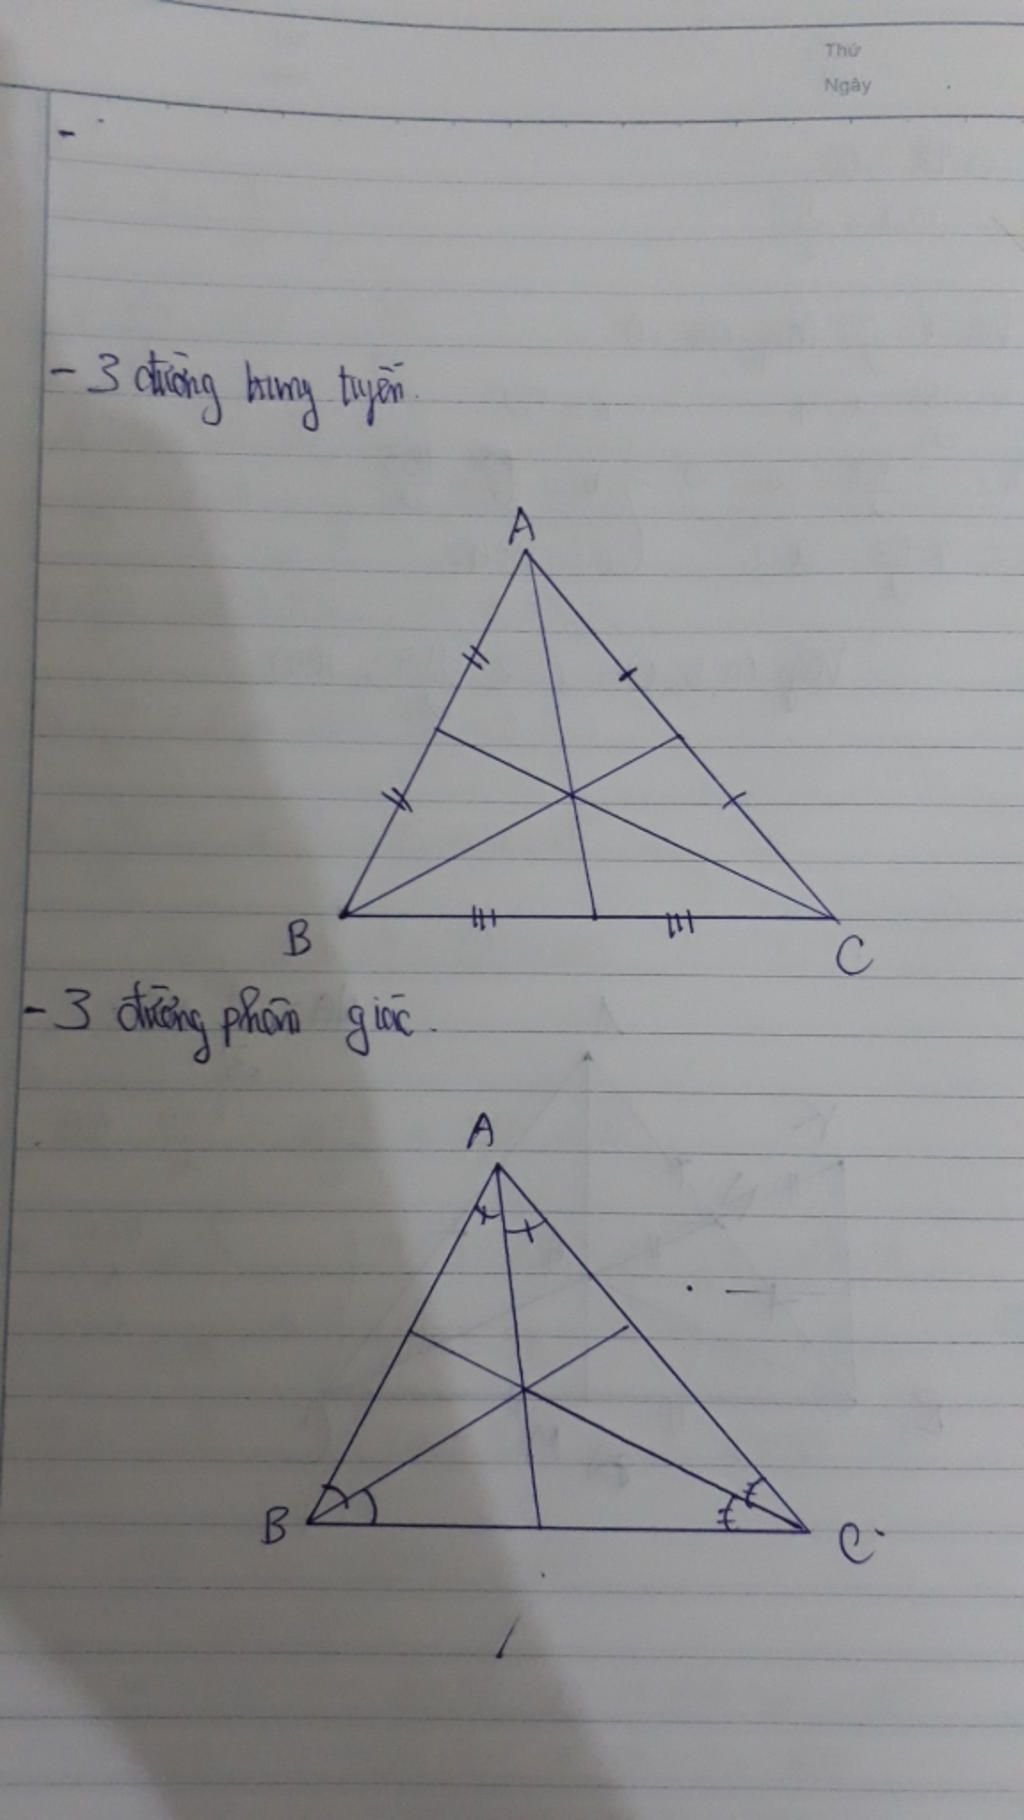 Thứ
Ngày
-
- 3 đường trung tuyến.
A
B
C
- 3 đường phân giác.
A
B
C